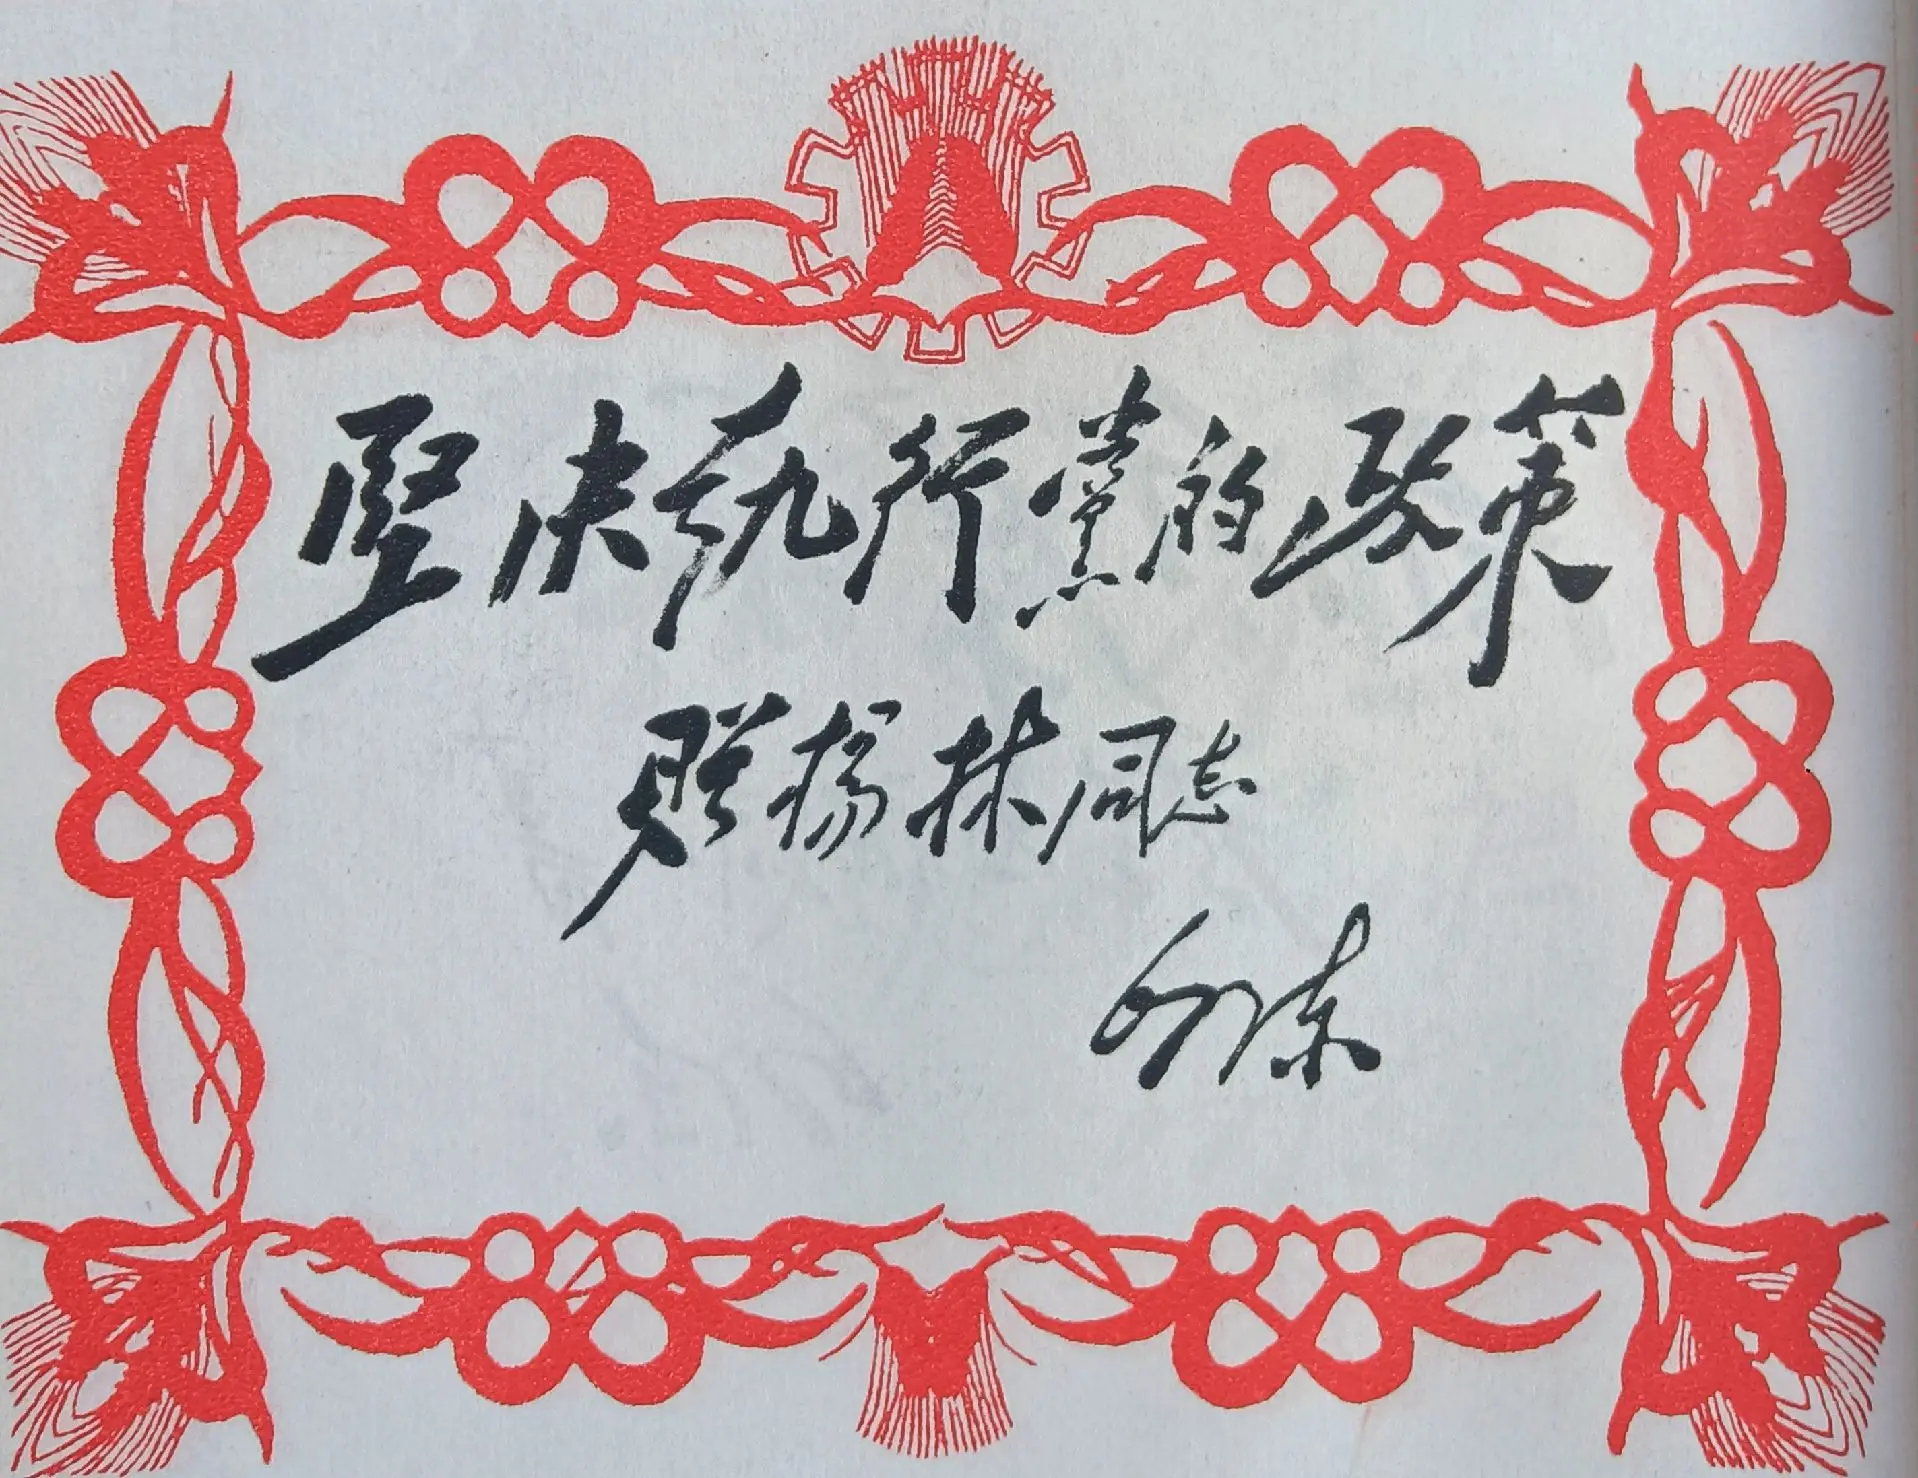 堅决執行黨的政策
贈楊林同志